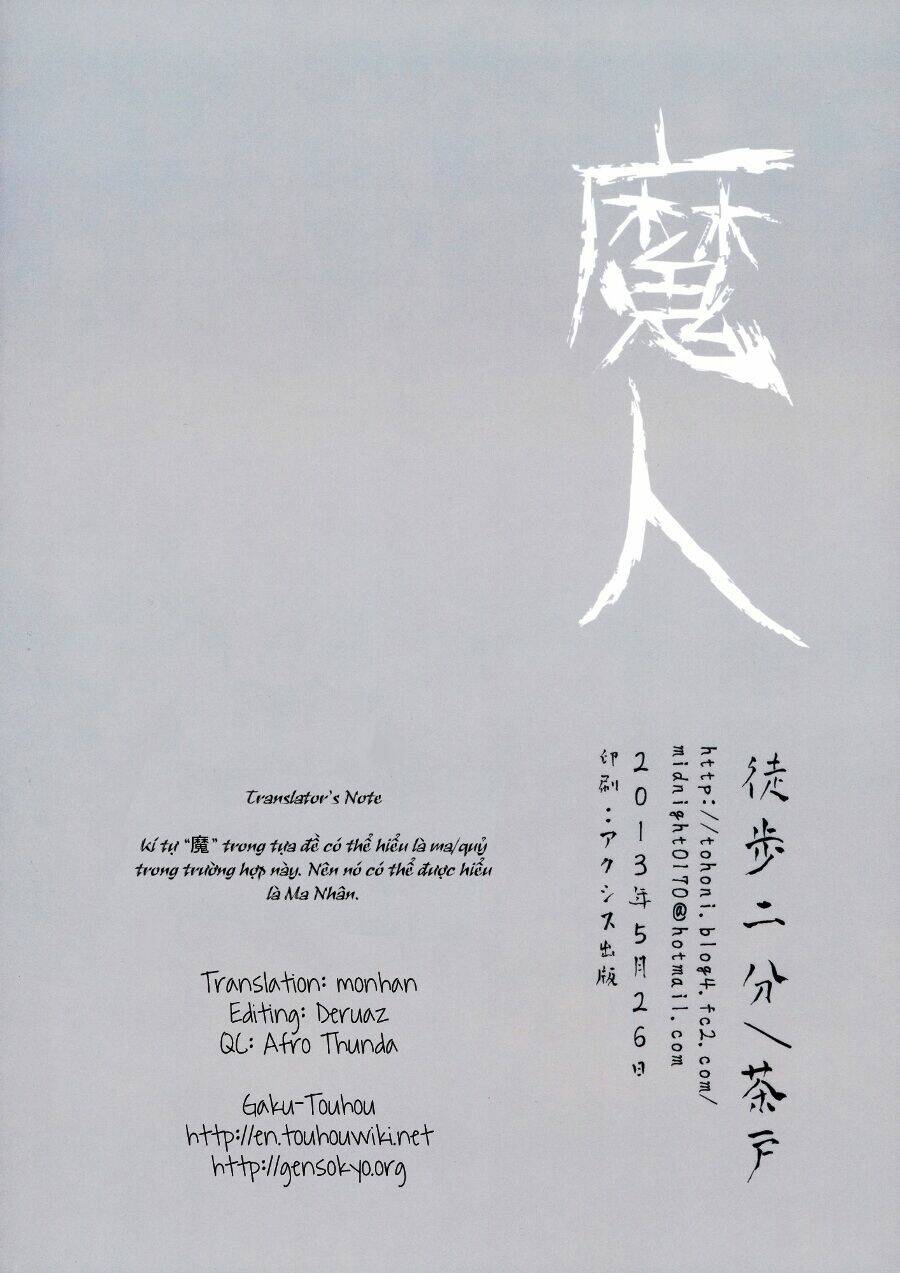 魔人
徒歩二分/茶戸
http://tohoni.blog4.fc2.com/
midnight0170@hotmail.com
2013年5月26日
印刷:アクシス出版
Translator's Note
kí tự "魔" trong tựa đề có thể hiểu là ma/quỷ
trong trường hợp này. Nên nó có thể được hiểu
là Ma Nhân.
Translation: monhan
Editing: Deruaz
QC: Afro Thunda
Gaku-Touhou
http://en.touhouwiki.net
http://gensokyo.org